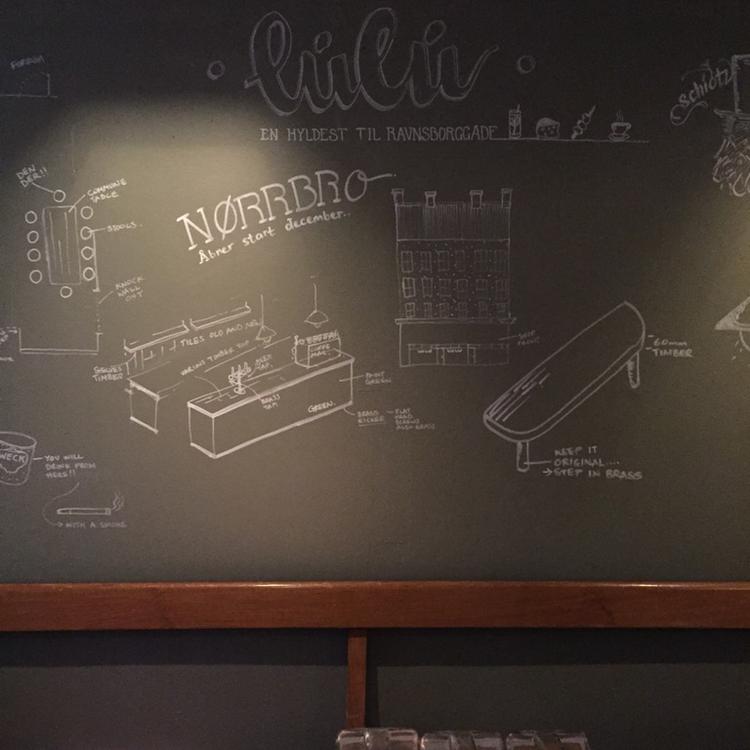 lüLü
EN HYLDEST TIL RAVNSBORGGADE
Schiøtz
FORRUM
NØRRBRO
Åbner start december..
DEN
DER!!
COMMUNE
TABLE
STOOLS
KNOCK
WALL
OUT
TILES OLD AND NEW
SHELVES
TIMBER
VARIOUS TIMBER TOP
BEER
TAP.
COFFEE
MAC.
BRASS
TAP
PAINT
GREEN
GREEN.
BRASS
KICKER
FLAT
HEAD
SCREWS
ALSO BRASS
SHOP
FRONT
60mm
TIMBER
KEEP IT
ORIGINAL....
→ STEP IN BRASS
WECK
YOU WILL
DRINK FROM
HERE!!
→ WITH A SMOKE